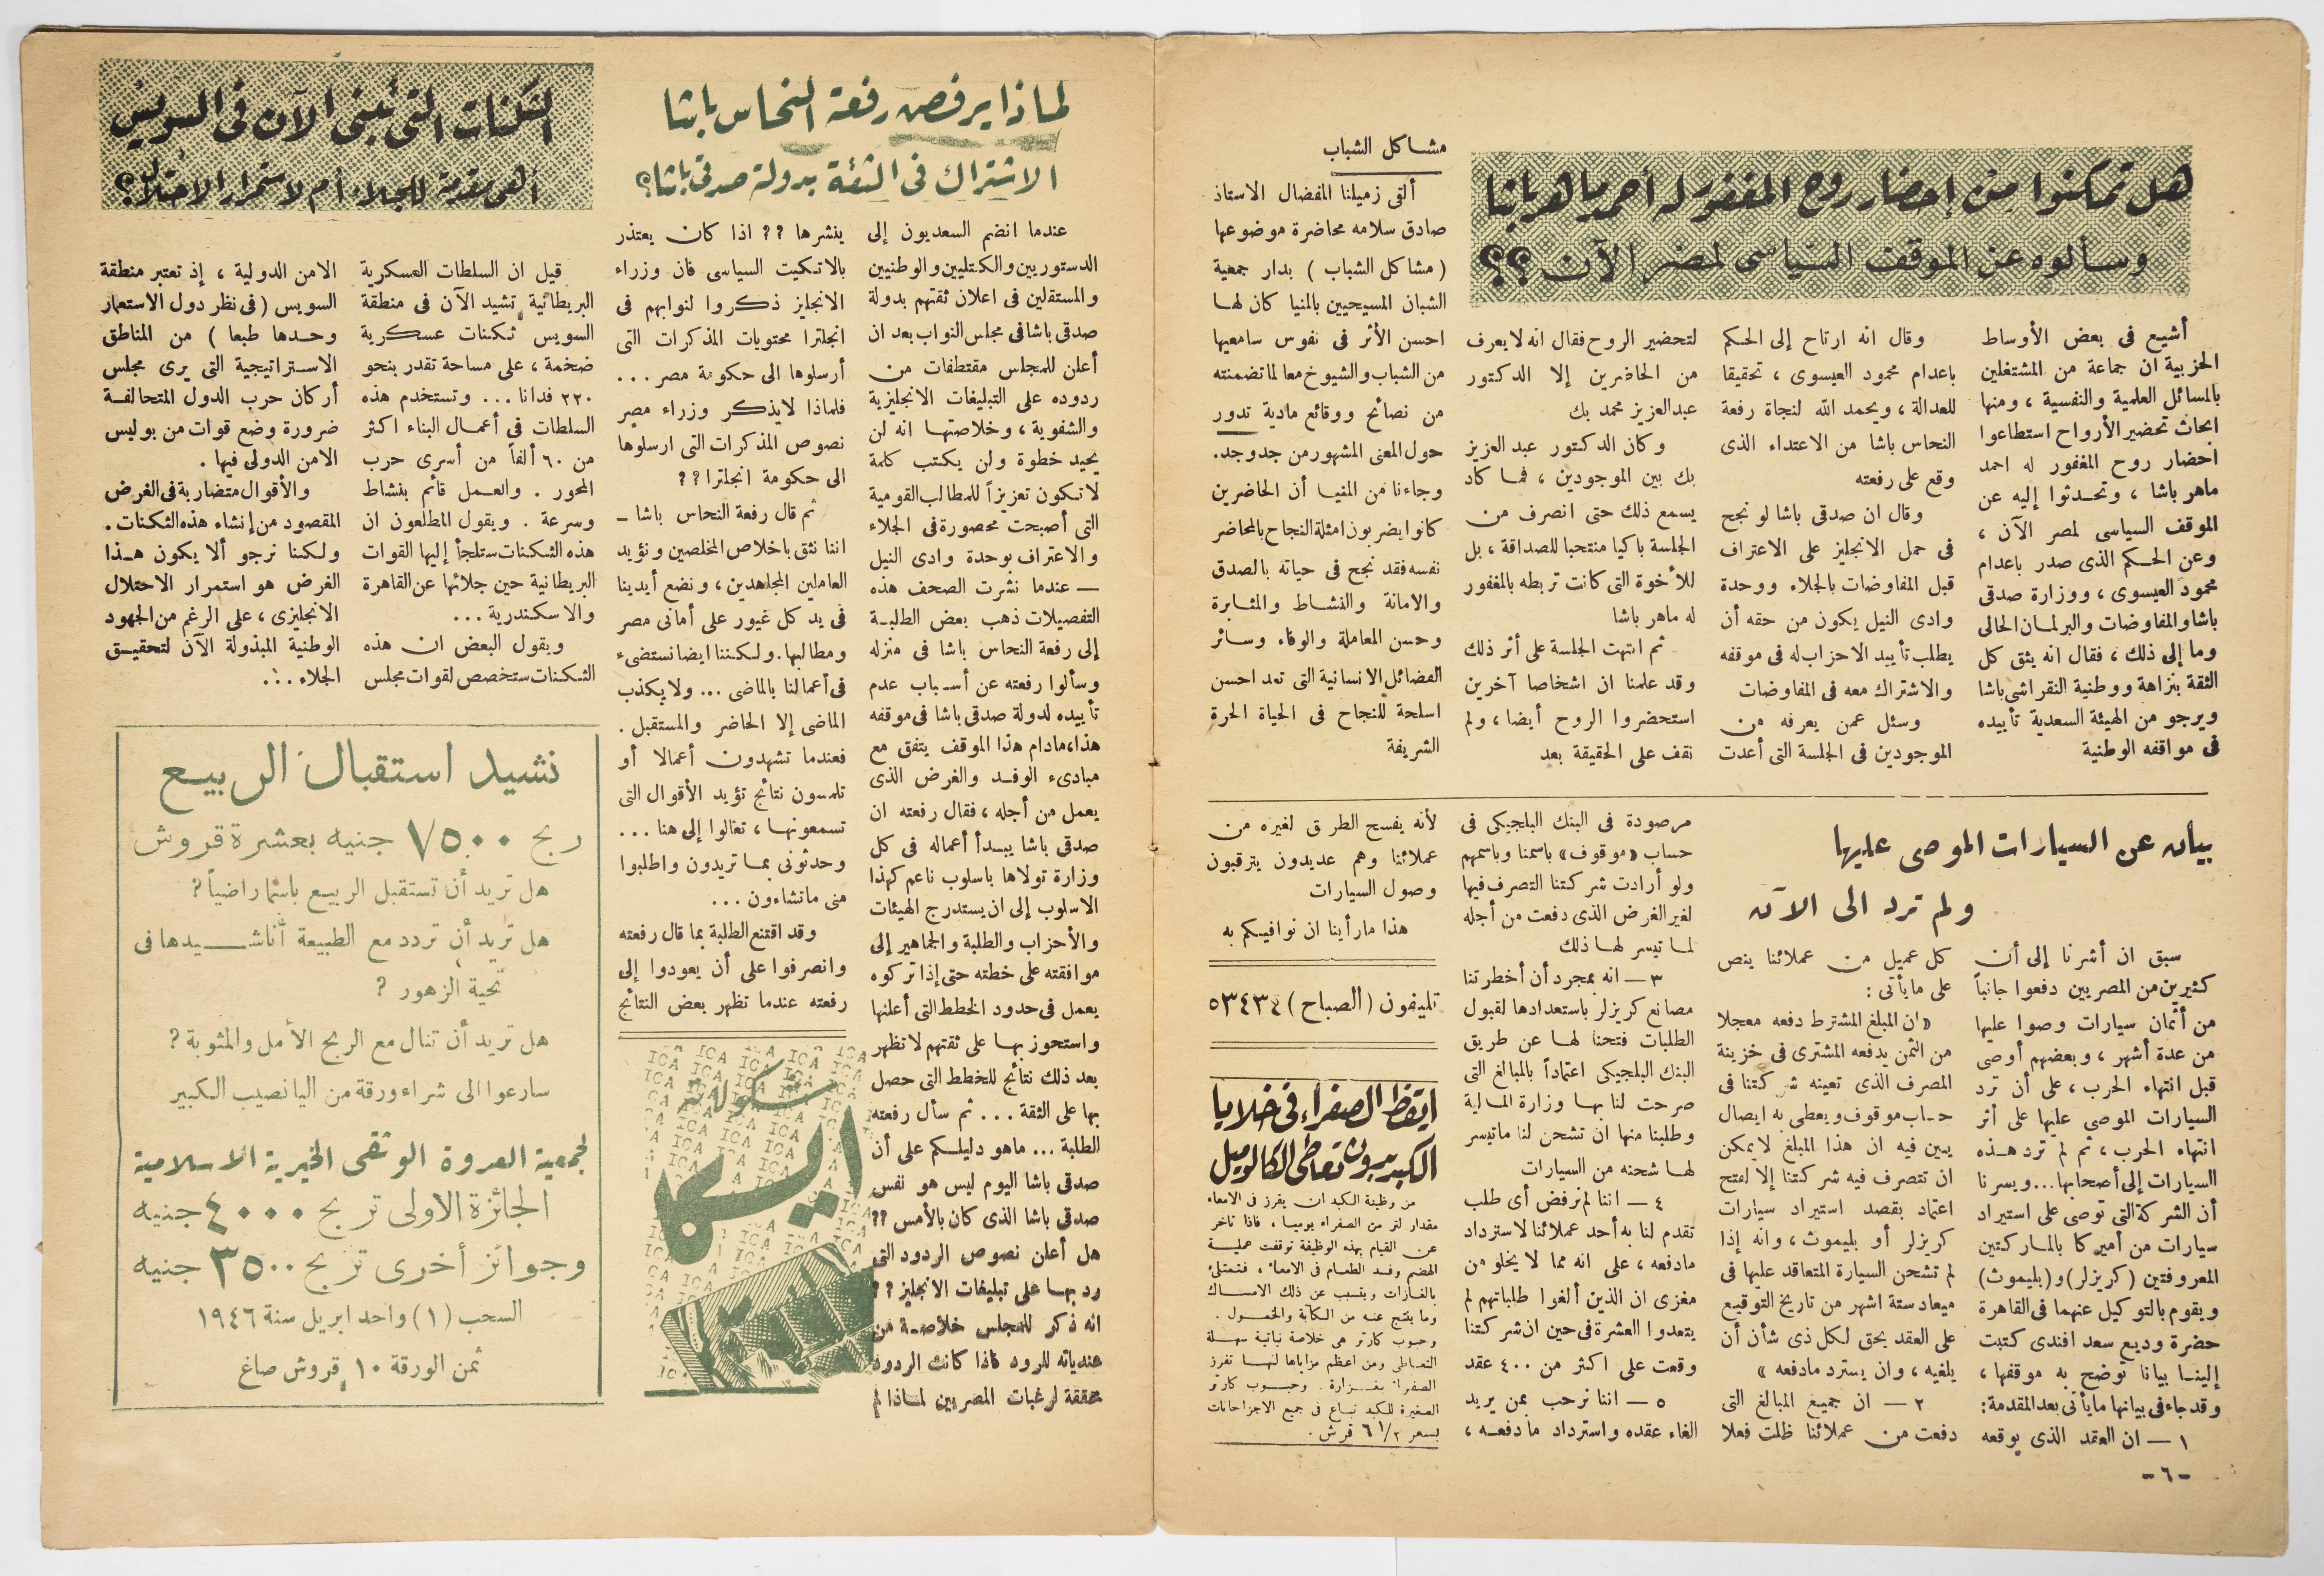 هل تمكنوا من إحضار روح المغفور له أحمد ماهر باشا
وسألوه عن الموقف السياسى لمصر الآن ؟؟
أشيع فى بعض الأوساط
الحزبية ان جماعة من المشتغلين
بالمسائل العلمية والنفسية ، ومنها
ابحاث تحضير الأرواح استطاعوا
احضار روح المغفور له احمد
ماهر باشا ، وتحدثوا إليه عن
الموقف السياسى لمصر الآن ،
وعن الحكم الذى صدر باعدام
محمود العيسوى ، ووزارة صدقى
باشا والمفاوضات والبرلمان الحالى
وما إلى ذلك ، فقال انه يثق كل
الثقة بنزاهة ووطنية النقراشى باشا
ويرجو من الهيئة السعدية تأييده
فى مواقفه الوطنية
وقال انه ارتاح إلى الحكم
باعدام محمود العيسوى ، تحقيقا
للعدالة ، ويحمد الله لنجاة رفعة
النحاس باشا من الاعتداء الذى
وقع على رفعته
وقال ان صدقى باشا لو نجح
فى حمل الانجليز على الاعتراف
قبل المفاوضات بالجلاء ووحدة
وادى النيل يكون من حقه أن
يطلب تأييد الاحزاب له فى موقفه
والاشتراك معه فى المفاوضات
وسئل عمن يعرفه من
الموجودين فى الجلسة التى أعدت
لتحضير الروح فقال انه لا يعرف
من الحاضرين إلا الدكتور
عبدالعزيز محمد بك
وكان الدكتور عبد العزيز
بك بين الموجودين ، فما كاد
يسمع ذلك حتى انصرف من
الجلسة باكيا منتحبا للصداقة ، بل
للأخوة التى كانت تربطه بالمغفور
له ماهر باشا
ثم انتهت الجلسة على أثر ذلك
وقد علمنا ان اشخاصا آخرين
استحضروا الروح أيضا ، ولم
نقف على الحقيقة بعد
مشاكل الشباب
ألقى زميلنا المفضال الاستاذ
صادق سلامه محاضرة موضوعها
( مشاكل الشباب ) بدار جمعية
الشبان المسيحيين بالمنيا كان لها
احسن الأثر فى نفوس سامعيها
من الشباب والشيوخ معا لما تضمنته
من نصائح ووقائع مادية تدور
حول المعنى المشهور من جد وجد .
وجاءنا من المنيا أن الحاضرين
كانوا يضربون امثلة النجاح بالمحاضر
نفسه فقد نجح فى حياته بالصدق
والامانة والنشاط والمثابرة
وحسن المعاملة والوفاء وسائر
الفضائل الانسانية التى تعد احسن
اسلحة للنجاح فى الحياة الحرة
الشريفة
بيان عن السيارات الموصى عليها
ولم ترد الى الآن
سبق ان أشرنا إلى أن
كثيرين من المصريين دفعوا جانباً
من أثمان سيارات وصوا عليها
من عدة أشهر ، وبعضهم أوصى
قبل انتهاء الحرب ، على أن ترد
السيارات الموصى عليها على أثر
انتهاء الحرب ، ثم لم ترد هذه
السيارات إلى أصحابها ... ويسرنا
أن الشركة التى توصى على استيراد
سيارات من أميركا بالماركتين
المعروفتين (كريزلر) و (بليموث)
ويقوم بالتوكيل عنهما فى القاهرة
حضرة وديع سعد افندى كتبت
إلينا بيانا توضح به موقفها ،
وقد جاء فى بيانها ما يأتى بعد المقدمة :
١ — ان العقد الذى يوقعه
كل عميل من عملائنا ينص
على ما يأتى :
« ان المبلغ المشترط دفعه معجلا
من الثمن يدفعه المشترى فى خزينة
المصرف الذى تعينه شركتنا فى
حساب موقوف ويعطى به ايصال
يبين فيه ان هذا المبلغ لا يمكن
ان تتصرف فيه شركتنا إلا لفتح
اعتماد بقصد استيراد سيارات
كريزلر أو بليموث ، وانه إذا
لم تشحن السيارة المتعاقد عليها فى
ميعاد ستة اشهر من تاريخ التوقيع
على العقد يحق لكل ذى شأن أن
يلغيه ، وان يسترد ما دفعه »
٢ — ان جميع المبالغ التى
دفعت من عملائنا ظلت فعلا
مرصودة فى البنك البلجيكى فى
حساب «موقوف» باسمنا وباسمهم
ولو أرادت شركتنا التصرف فيها
لغير الغرض الذى دفعت من أجله
لما تيسر لها ذلك
٣ — انه بمجرد أن أخطرتنا
مصانع كريزلر باستعدادها لقبول
الطلبات فتحنا لها عن طريق
البنك البلجيكى اعتماداً بالمبالغ التى
صرحت لنا بها وزارة المالية
وطلبنا منها ان تشحن لنا ما تيسر
لها شحنه من السيارات
٤ — اننا لم نرفض أى طلب
تقدم لنا به أحد عملائنا لاسترداد
ما دفعه ، على انه مما لا يخلو من
مغزى ان الذين ألغوا طلباتهم لم
يتعدوا العشرة فى حين ان شركتنا
وقعت على اكثر من ٤٠٠ عقد
٥ — اننا نرحب بمن يريد
الغاء عقده واسترداد ما دفعه ،
لأنه يفسح الطريق لغيره من
عملائنا وهم عديدون يترقبون
وصول السيارات
هذا ما رأينا ان نوافيكم به
تليفون (الصباح) ٥٣٤٣٤
ايقظ الصفراء فى خلايا
الكبد بدون تعاطى الكالوميل
من وظيفة الكبد ان يفرز فى الامعاء
مقدار لتر من الصفراء يوميا ، فاذا تأخر
عن القيام بهذه الوظيفة توقفت عملية
الهضم وفسد الطعام فى الامعاء ، فتمتلئ
بالغازات ويتسبب عن ذلك الامساك
وما ينتج عنه من الكآبة والخمول .
وحبوب كارتر هى خلاصة نباتية سهلة
التعاطى ومن اعظم مزاياها انها تفرز
الصفراء بغزارة . وحبوب كارتر
الصغيرة للكبد تباع فى جميع الاجزاخانات
بسعر ٦ ١/٢ قرش .
- ٦ -
لماذا يرفض رفعة النحاس باشا
الاشتراك فى الثقة بدولة صدقى باشا ؟
عندما انضم السعديون إلى
الدستوريين والكتليين والوطنيين
والمستقلين فى اعلان ثقتهم بدولة
صدقى باشا فى مجلس النواب بعد ان
أعلن للمجلس مقتطفات من
ردوده على التبليغات الانجليزية
والشفوية ، وخلاصتها انه لن
يحيد خطوة ولن يكتب كلمة
لا تكون تعزيزاً للمطالب القومية
التى أصبحت محصورة فى الجلاء
والاعتراف بوحدة وادى النيل
— عندما نشرت الصحف هذه
التفصيلات ذهب بعض الطلبة
إلى رفعة النحاس باشا فى منزله
وسألوا رفعته عن أسباب عدم
تأييده لدولة صدقى باشا فى موقفه
هذا ، مادام هذا الموقف يتفق مع
مبادىء الوفد والغرض الذى
يعمل من أجله ، فقال رفعته ان
صدقى باشا يبدأ أعماله فى كل
وزارة تولاها باسلوب ناعم كهذا
الاسلوب إلى ان يستدرج الهيئات
والأحزاب والطلبة والجماهير إلى
موافقته على خطته حتى إذا تركوه
يعمل فى حدود الخطط التى أعلنها
واستحوز بها على ثقتهم لا تظهر
بعد ذلك نتائج للخطط التى حصل
بها على الثقة ... ثم سأل رفعته
الطلبة ... ماهو دليلكم على أن
صدقى باشا اليوم ليس هو نفس
صدقى باشا الذى كان بالأمس ؟؟
هل أعلن نصوص الردود التى
رد بها على تبليغات الانجليز ؟ ؟
انه ذكر للمجلس خلاصة من
عندياته للردود فاذا كانت الردود
محققة لرغبات المصريين لماذا لم
ينشرها ؟؟ اذا كان يعتذر
بالاتكيت السياسى فان وزراء
الانجليز ذكروا لنوابهم فى
انجلترا محتويات المذكرات التى
أرسلوها الى حكومة مصر ...
فلماذا لا يذكر وزراء مصر
نصوص المذكرات التى ارسلوها
الى حكومة انجلترا ؟؟
ثم قال رفعة النحاس باشا —
اننا نثق باخلاص المخلصين ونؤيد
العاملين المجاهدين ، ونضع أيدينا
فى يد كل غيور على أمانى مصر
ومطالبها . ولكننا ايضا نستضىء
فى أعمالنا بالماضى ... ولا يكذب
الماضى إلا الحاضر والمستقبل .
فعندما تشهدون أعمالا أو
تلمسون نتائج تؤيد الأقوال التى
تسمعونها ، تعالوا إلى هنا ...
وحدثونى بما تريدون واطلبوا
منى ما تشاءون ...
وقد اقتنع الطلبة بما قال رفعته
وانصرفوا على أن يعودوا إلى
رفعته عندما تظهر بعض النتائج
شكولاتة
ايكا
ICA
الثكنات التى تبنى الآن فى السويس
أهى مقدمة للجلاء أم لاستمرار الاحتلال ؟
قيل ان السلطات العسكرية
البريطانية تشيد الآن فى منطقة
السويس ثكنات عسكرية
ضخمة ، على مساحة تقدر بنحو
٢٢٠ فدانا ... وتستخدم هذه
السلطات فى أعمال البناء اكثر
من ٦٠ ألفاً من أسرى حرب
المحور . والعمل قائم بنشاط
وسرعة . ويقول المطلعون ان
هذه الثكنات ستلجأ إليها القوات
البريطانية حين جلائها عن القاهرة
والاسكندرية ...
ويقول البعض ان هذه
الثكنات ستخصص لقوات مجلس
الامن الدولية ، إذ تعتبر منطقة
السويس (فى نظر دول الاستعمار
وحدها طبعا ) من المناطق
الاستراتيجية التى يرى مجلس
أركان حرب الدول المتحالفة
ضرورة وضع قوات من بوليس
الامن الدولى فيها .
والأقوال متضاربة فى الغرض
المقصود من إنشاء هذه الثكنات .
ولكنا نرجو ألا يكون هذا
الغرض هو استمرار الاحتلال
الانجليزى ، على الرغم من الجهود
الوطنية المبذولة الآن لتحقيق
الجلاء ...
نشيد استقبال الربيع
ربح ٧٥٠٠ جنيه بعشرة قروش
هل تريد أن تستقبل الربيع باسما راضياً ؟
هل تريد أن تردد مع الطبيعة أناشيدها فى
تحية الزهور ؟
هل تريد أن تنال مع الربح الأمل والمثوبة ؟
سارعوا الى شراء ورقة من اليانصيب الكبير
لجمعية العروة الوثقى الخيرية الاسلامية
الجائزة الاولى تربح ٤٠٠٠ جنيه
وجوائز أخرى تربح ٣٥٠٠ جنيه
السحب (١) واحد ابريل سنة ١٩٤٦
ثمن الورقة ١٠ قروش صاغ